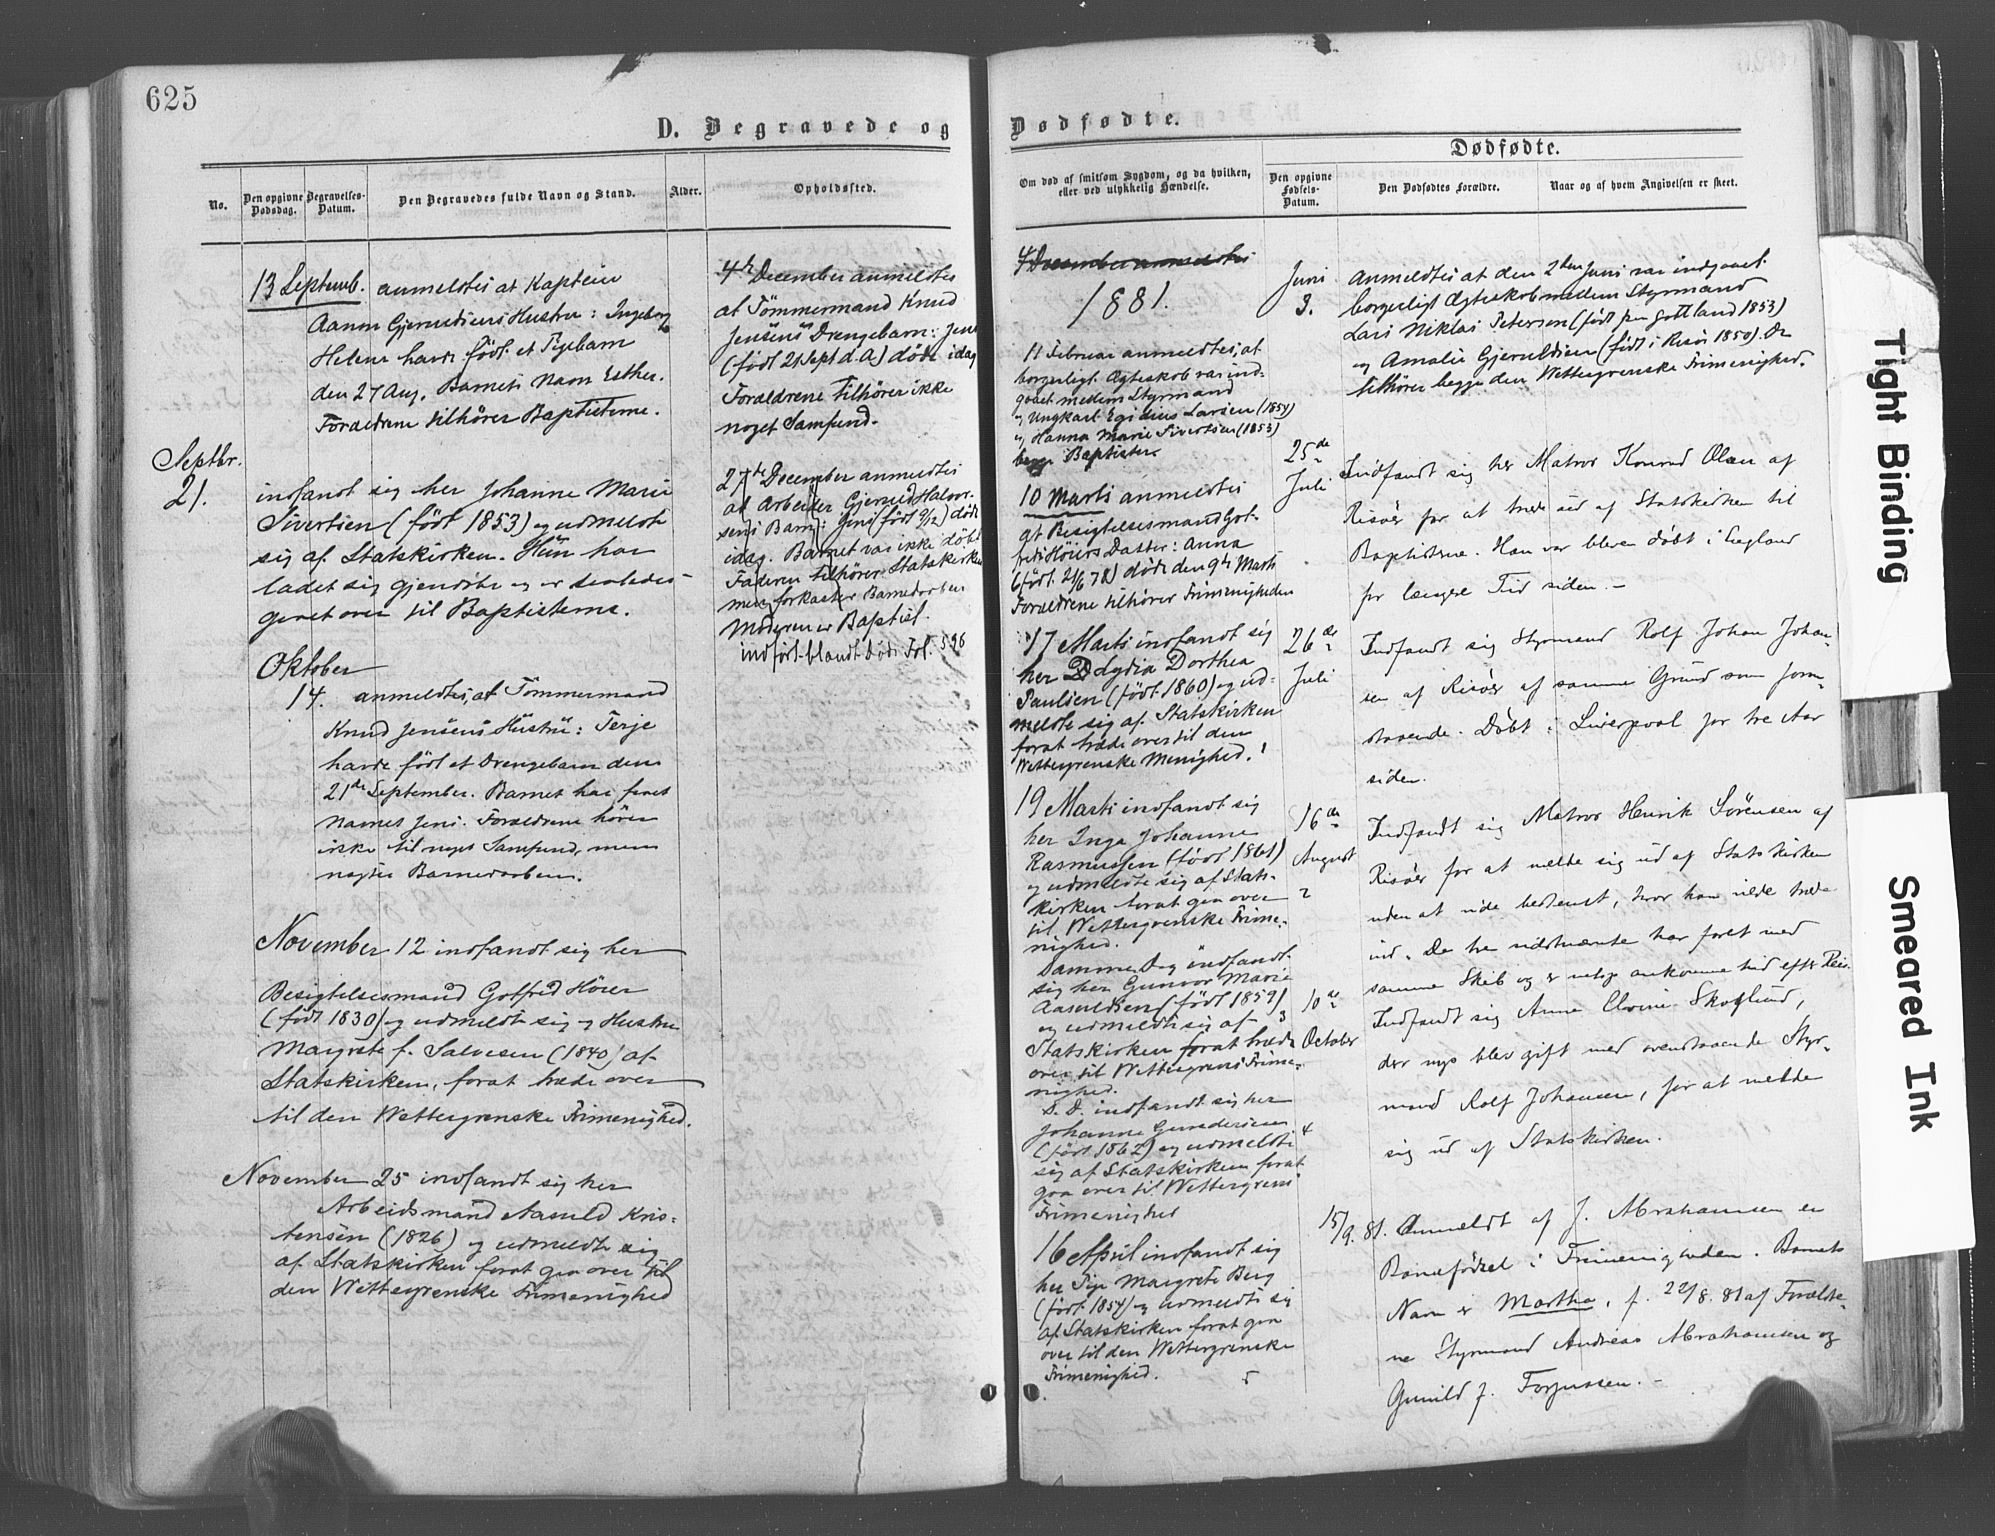 625
D. Begravede og
No.
Den opgivne Dødsdag.
Begravelses-Datum.
Den Begravedes fulde Navn og Stand.
Alder.
Opholdssted.
13 Septemb. anmeldtes at Kaptein
Aanon Gjeruldsens Hustru: Ingeborg
Helene havde født et Pigebarn
den 27 Aug. Barnets Navn Esther.
Forældrene tilhører Baptisterne.
Septbr.
21.
indfandt sig her Johanne Marie
Sivertsen (født 1853) og udmeldte
sig af Statskirken. Hun har
ladet sig gjendøbe og er saaledes
gaaet over til Baptisterne.
Oktober
14. anmeldtes, at Tömmermand
Knud Jensens Hustru: Terje
havde født et Drengebarn den
21de September. Barnet har faaet
Navnet Jens. Forældrene hører
ikke til noget Samfund, men
negter Barnedaaben.
November 12 indfandt sig her
Besigtelsesmand Gotfred Höier
(født 1830) og udmeldte sig og Hustru
Margrete f. Salvesen (1840) af
Statskirken, forat træde over
til den Wettergrenske Frimenighed.
November 25 indfandt sig her
Arbeidsmand Aasuld Kris-
tensen (1826) og udmeldte sig
af Statskirken forat gaa over til
den Wettergrenske Frimenighed
4de December anmeldtes
at Tömmermand Knud
Jensens Drengebarn: Jens
(født 21 Sept d. A) døde idag
Forældrene tilhører ikke
noget Samfund.
27de December anmeldtes
at Arbeider Gjeruld Halvor-
sens Barn: Jens (født 9/12) døde
idag. Barnet var ikke døbt
Faderen tilhører Statskirken
men forkaster Barnedaaben
Moderen er Baptist.
indført blandt Døde Fol. 596
Dødfødte.
Om død af smitsom Sygdom, og da hvilken,
eller ved ulykkelig Hændelse.
Dødfødte.
Den opgivne Fødsels-Datum.
Den Dødfødtes Forældre.
Naar og af hvem Angivelsen er skeet.
4 December anmeldtes
1881.
11 Februar anmeldtes, at
borgerligt Ægteskab var ind-
gaaet mellem Styrmand
og Ungkarl Egidius Larsen (1854)
og Hanna Marie Sivertsen (1853)
begge Baptister.
10 Marts anmeldtes
at Besigtelsesmand Got-
freds Höiers Datter: Anna
(født 21/6 78) døde den 9de Marts
Forældrene tilhører Frimenigheden
17 Marts indfandt sig
her Lydia Dorthea
Paulsen (født 1860) og ud-
meldte sig af Statskirken
forat træde over til den
Wettergrenske Menighed.
19 Marts indfandt sig
her Inga Johanne
Rasmussen (født 1861)
og udmeldte sig af Stats-
kirken forat gaa over
til Wettergrenske Frime-
nighed. 2
Samme Dag indfandt
sig her Gunvor Marie
Aasuldsen (født 1859)
og udmeldte sig af 3
Statskirken forat træde
over til Wettergrens Frime-
nighed.
S. D. indfandt sig her
Johanne Gundersen
(født 1862) og udmeldte 4
sig af Statskirken forat
gaa over til Wettergrens
Frimenighed
16 April indfandt sig
her Pige Margrete Berg
(født 1854) og udmeldte sig
af Statskirken forat gaa
over til den Wettergrenske
Frimenighed. 5
Juni
3.
Anmeldtes at den 2den Juni var indgaaet
borgerligt Ægteskab mellem Styrmand
Lars Niklas Petersen (født paa Gottland 1853)
og Amalie Gjeruldsen (født i Risør 1850). De
tilhører begge den Wettergrenske Frimenighed.
25de
Juli
Indfandt sig her Matros Konrad Olsen af
Risøer for at træde ud af Statskirken til
Baptisterne. Han var bleven døbt i England
for længere Tid siden. –
26de
Juli
Indfandt sig Styrmand Rolf Johan Johan-
sen af Risøer af samme Grund som foran-
staaende. Døbt i Liverpool for tre Aar
siden.
16de
August
Indfandt sig Matros Henrik Sørensen af
Risøer for at melde sig ud af Statskirken
uden at vide bestemt, hvor han vilde træde
ind. De tre sidstnævnte har faret med
samme Skib og er netop ankomne hid efter Reis.
10de
October
Indfandt sig Anne Skoglund,
der nys blev gift med ovenstaaende Styr-
mand Rolf Johansen, for at melde
sig ud af Statskirken.
15/9. 81. Anmeldt af J. Abrahamsen en
Barnefødsel i Frimenigheden. Barnets
Navn er Martha, f. 22/8. 81 af Forældre-
ne Styrmand Andreas Abrahamsen og
Gunild f. Torjussen. –
Tight Binding
Smeared Ink